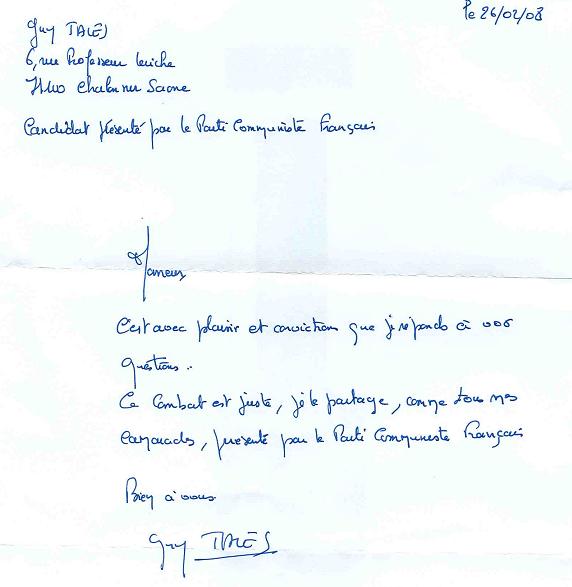 le 26/02/08
Guy TALÈS
6, rue Professeur Leriche
71100 Chalon sur Saone
Candidat présenté par le Parti Communiste Français
C'est avec plaisir et conviction que je réponds à vos
questions..
Ce Combat est juste, je le partage, comme tous mes
camarades, présenté par le Parti Communiste Français
Bien à vous
Guy TALÈS